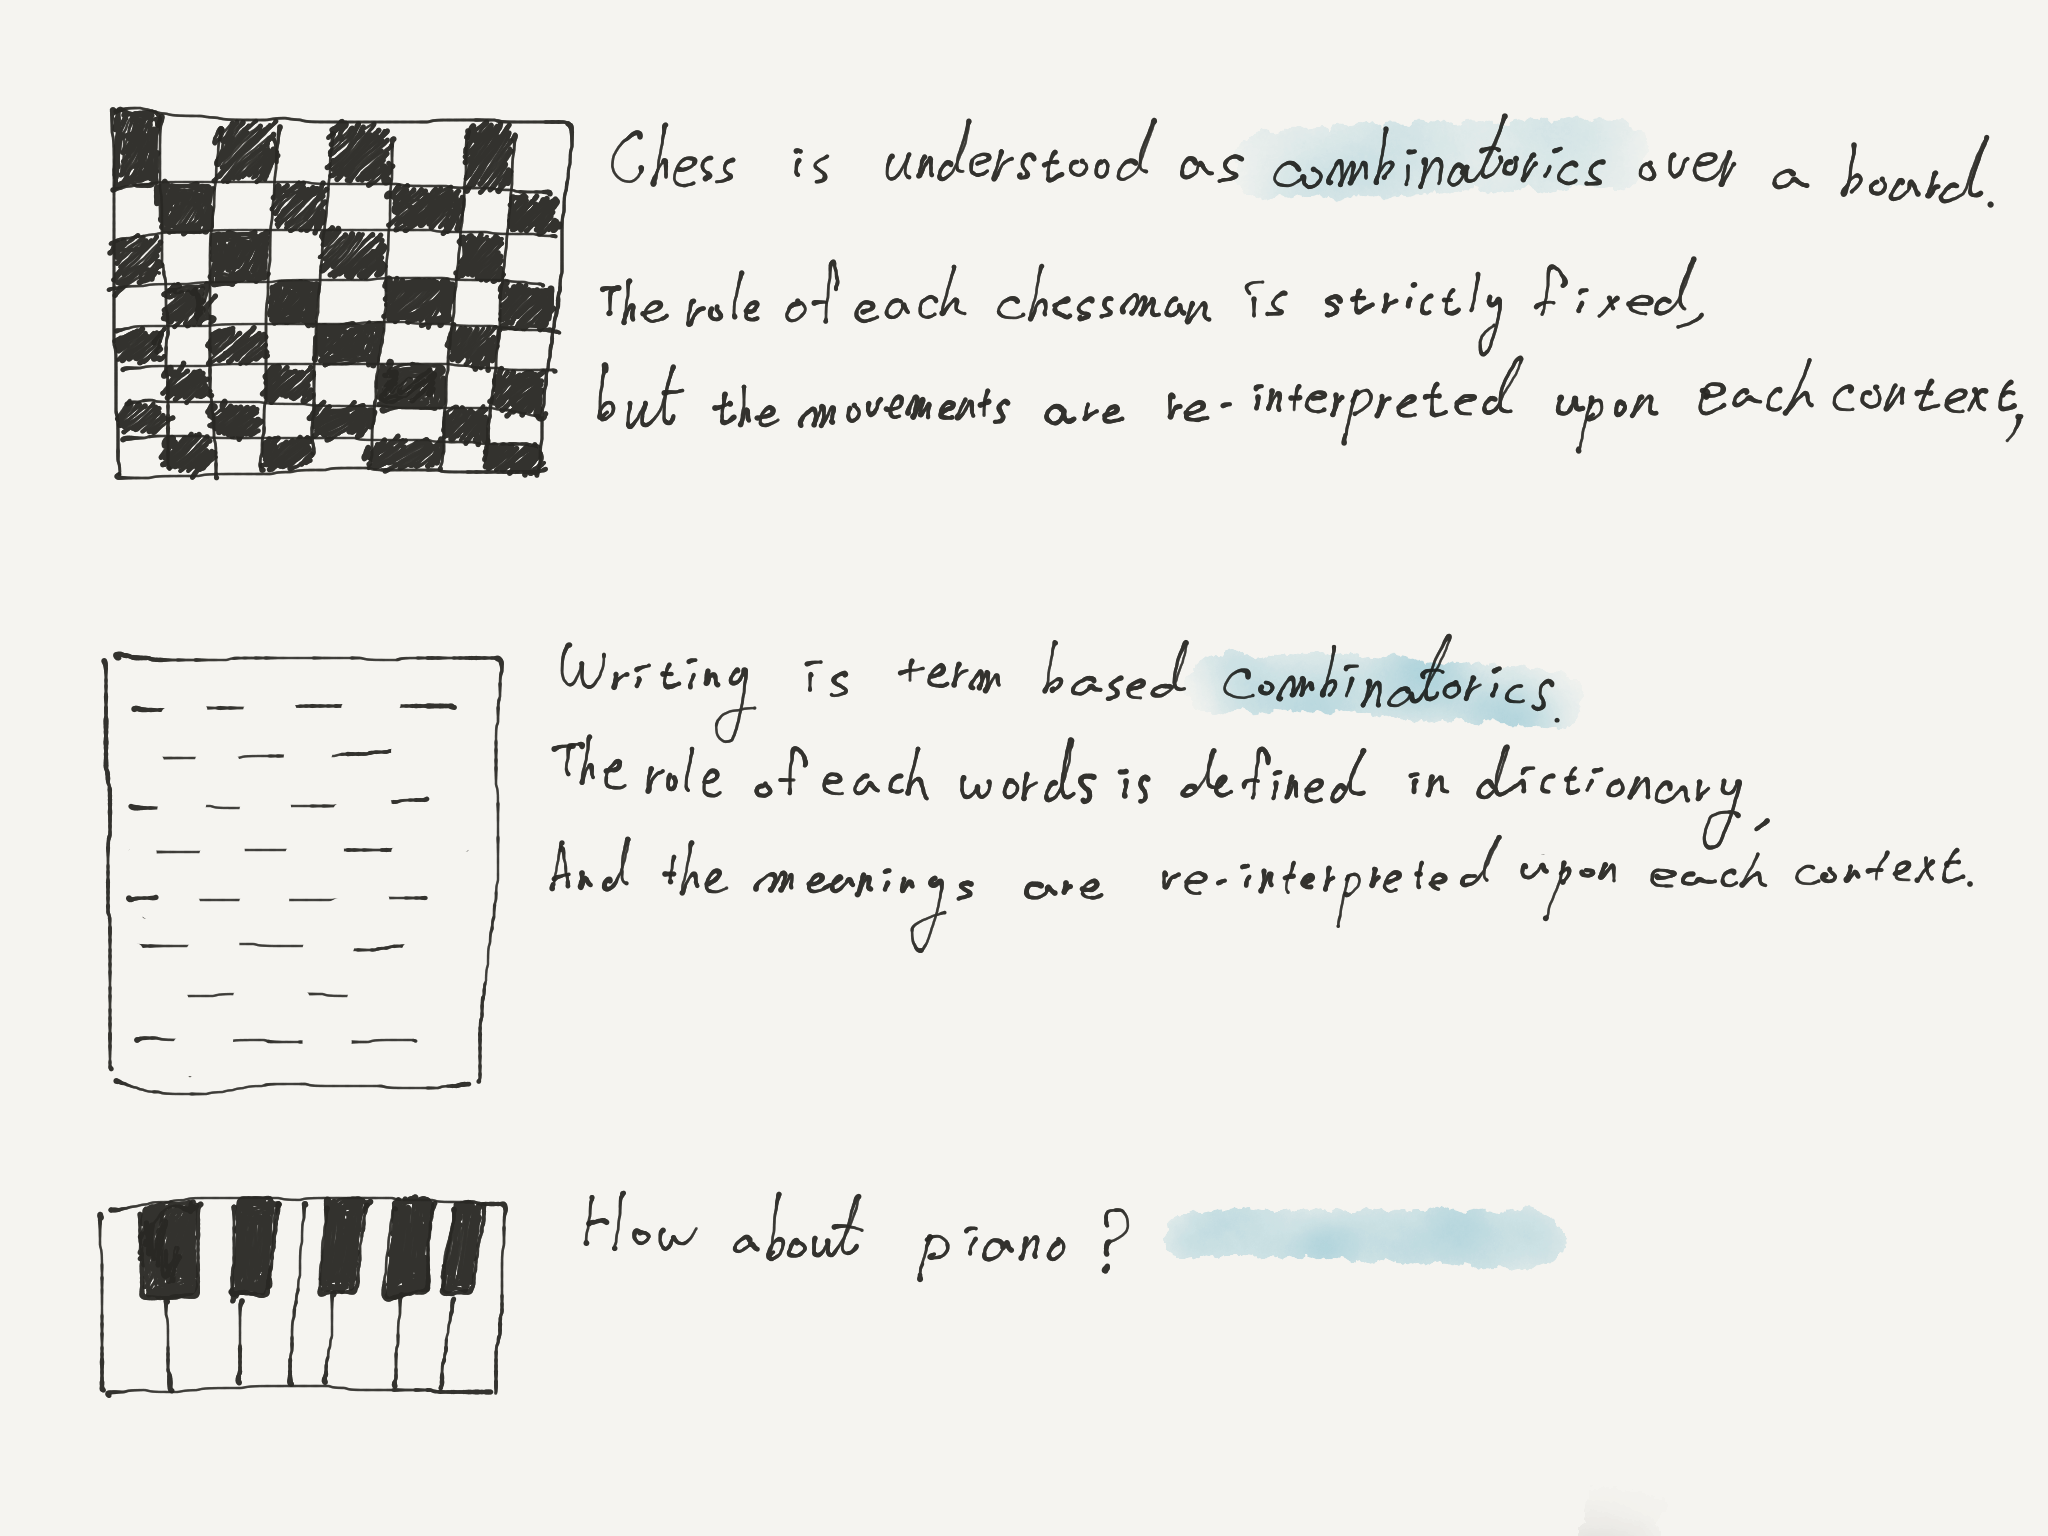 Chess is understood as combinatorics over a board.
The role of each chessman is strictly fixed,
but the movements are re-interpreted upon each context,
Writing is term based combinatorics.
The role of each words is defined in dictionary,
And the meanings are re-interpreted upon each context.
How about piano?